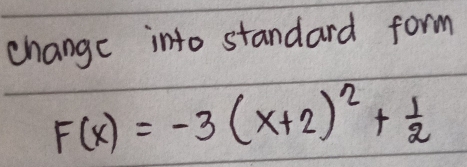 change into standard form
F(x) = -3 (x+2)² + 1/2